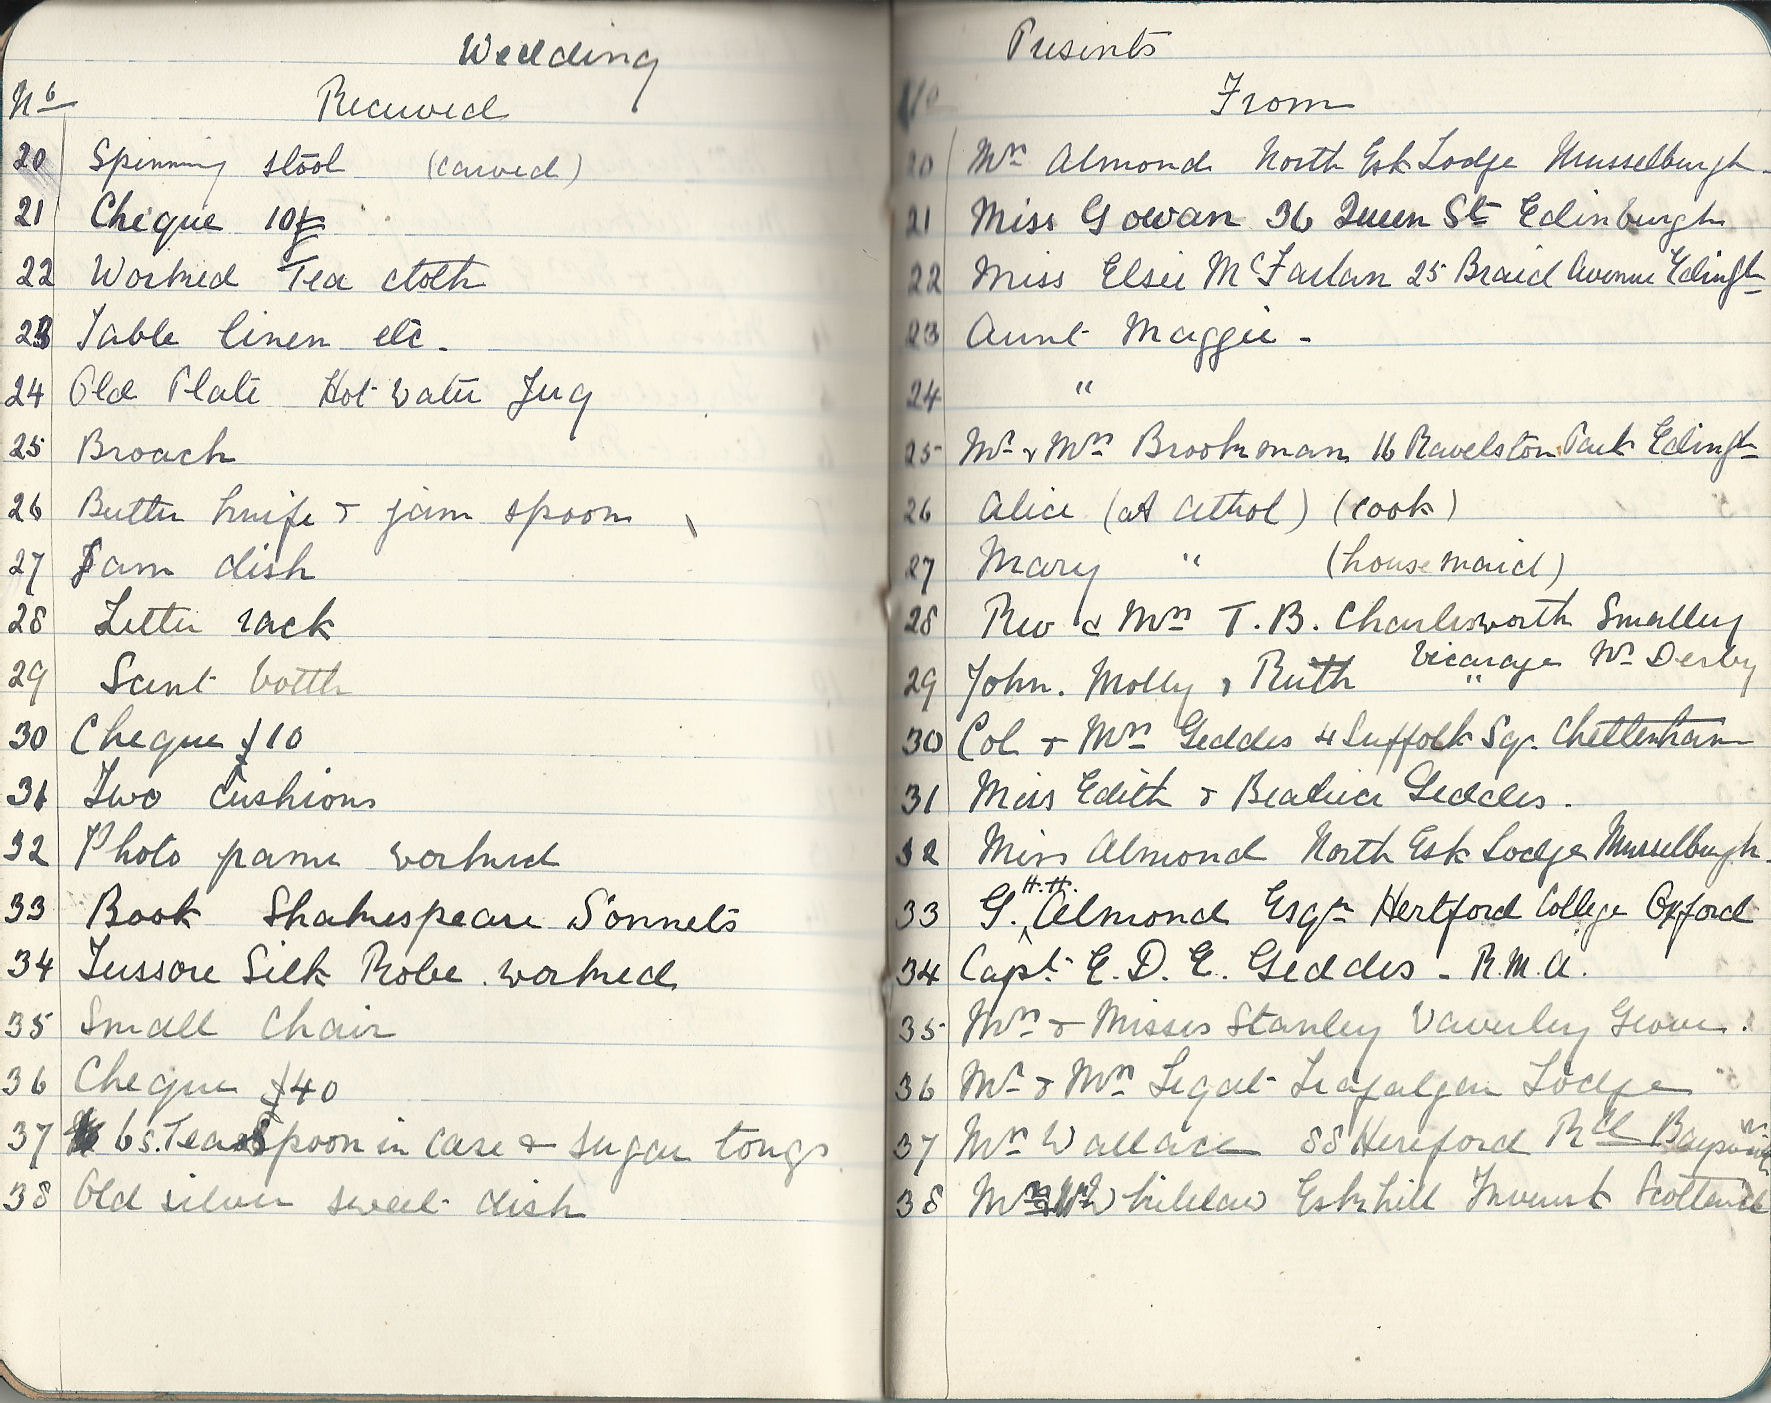 Wedding Presents
No Received No From
20 Spinning stool (carved) 20 Mrs Almond North Esk Lodge Musselburgh.
21 Cheque 10£ 21 Miss Gowan 36 Queen St Edinburgh
22 Worked Tea cloth 22 Miss Elsie McFarlan 25 Braid Avenue Edingh
23 Table linen etc. 23 Aunt Maggie -
24 Old Plate Hot Water Jug 24 "
25 Broach 25 Mr & Mrs Brookman 16 Ravelston Park Edingh
26 Butter knife & jam spoon 26 Alice (at Athol) (cook)
27 Jam dish 27 Mary " (housemaid)
28 Letter rack 28 Rev & Mrs T. B. Charlesworth Smalley
Vicarage Nr Derby
29 Scent bottle 29 John. Molly & Ruth "
30 Cheque £10 30 Col & Mrs Geddes 4 Suffolk Sqr. Cheltenham
31 Two Cushions 31 Miss Edith & Beatrice Geddes.
32 Photo frame worked 32 Miss Almond North Esk Lodge Musselburgh.
33 Book Shakespeare Sonnets 33 G. H.H. Almond Esqr Hertford College Oxford
34 Tussore Silk Robe worked 34 Capt. E. D. E. Geddes - R.M.A.
35 Small Chair 35 Mrs & Misses Stanley Waverley Grove.
36 Cheque £40 36 Mr & Mrs Legat Trafalgar Lodge
37 6 s. Tea Spoon in case & sugar tongs 37 Mrs Wallace 88 Hereford Rd
38 Old silver sweet dish 38 Whitelaw Eskhill Inveresk Scotland